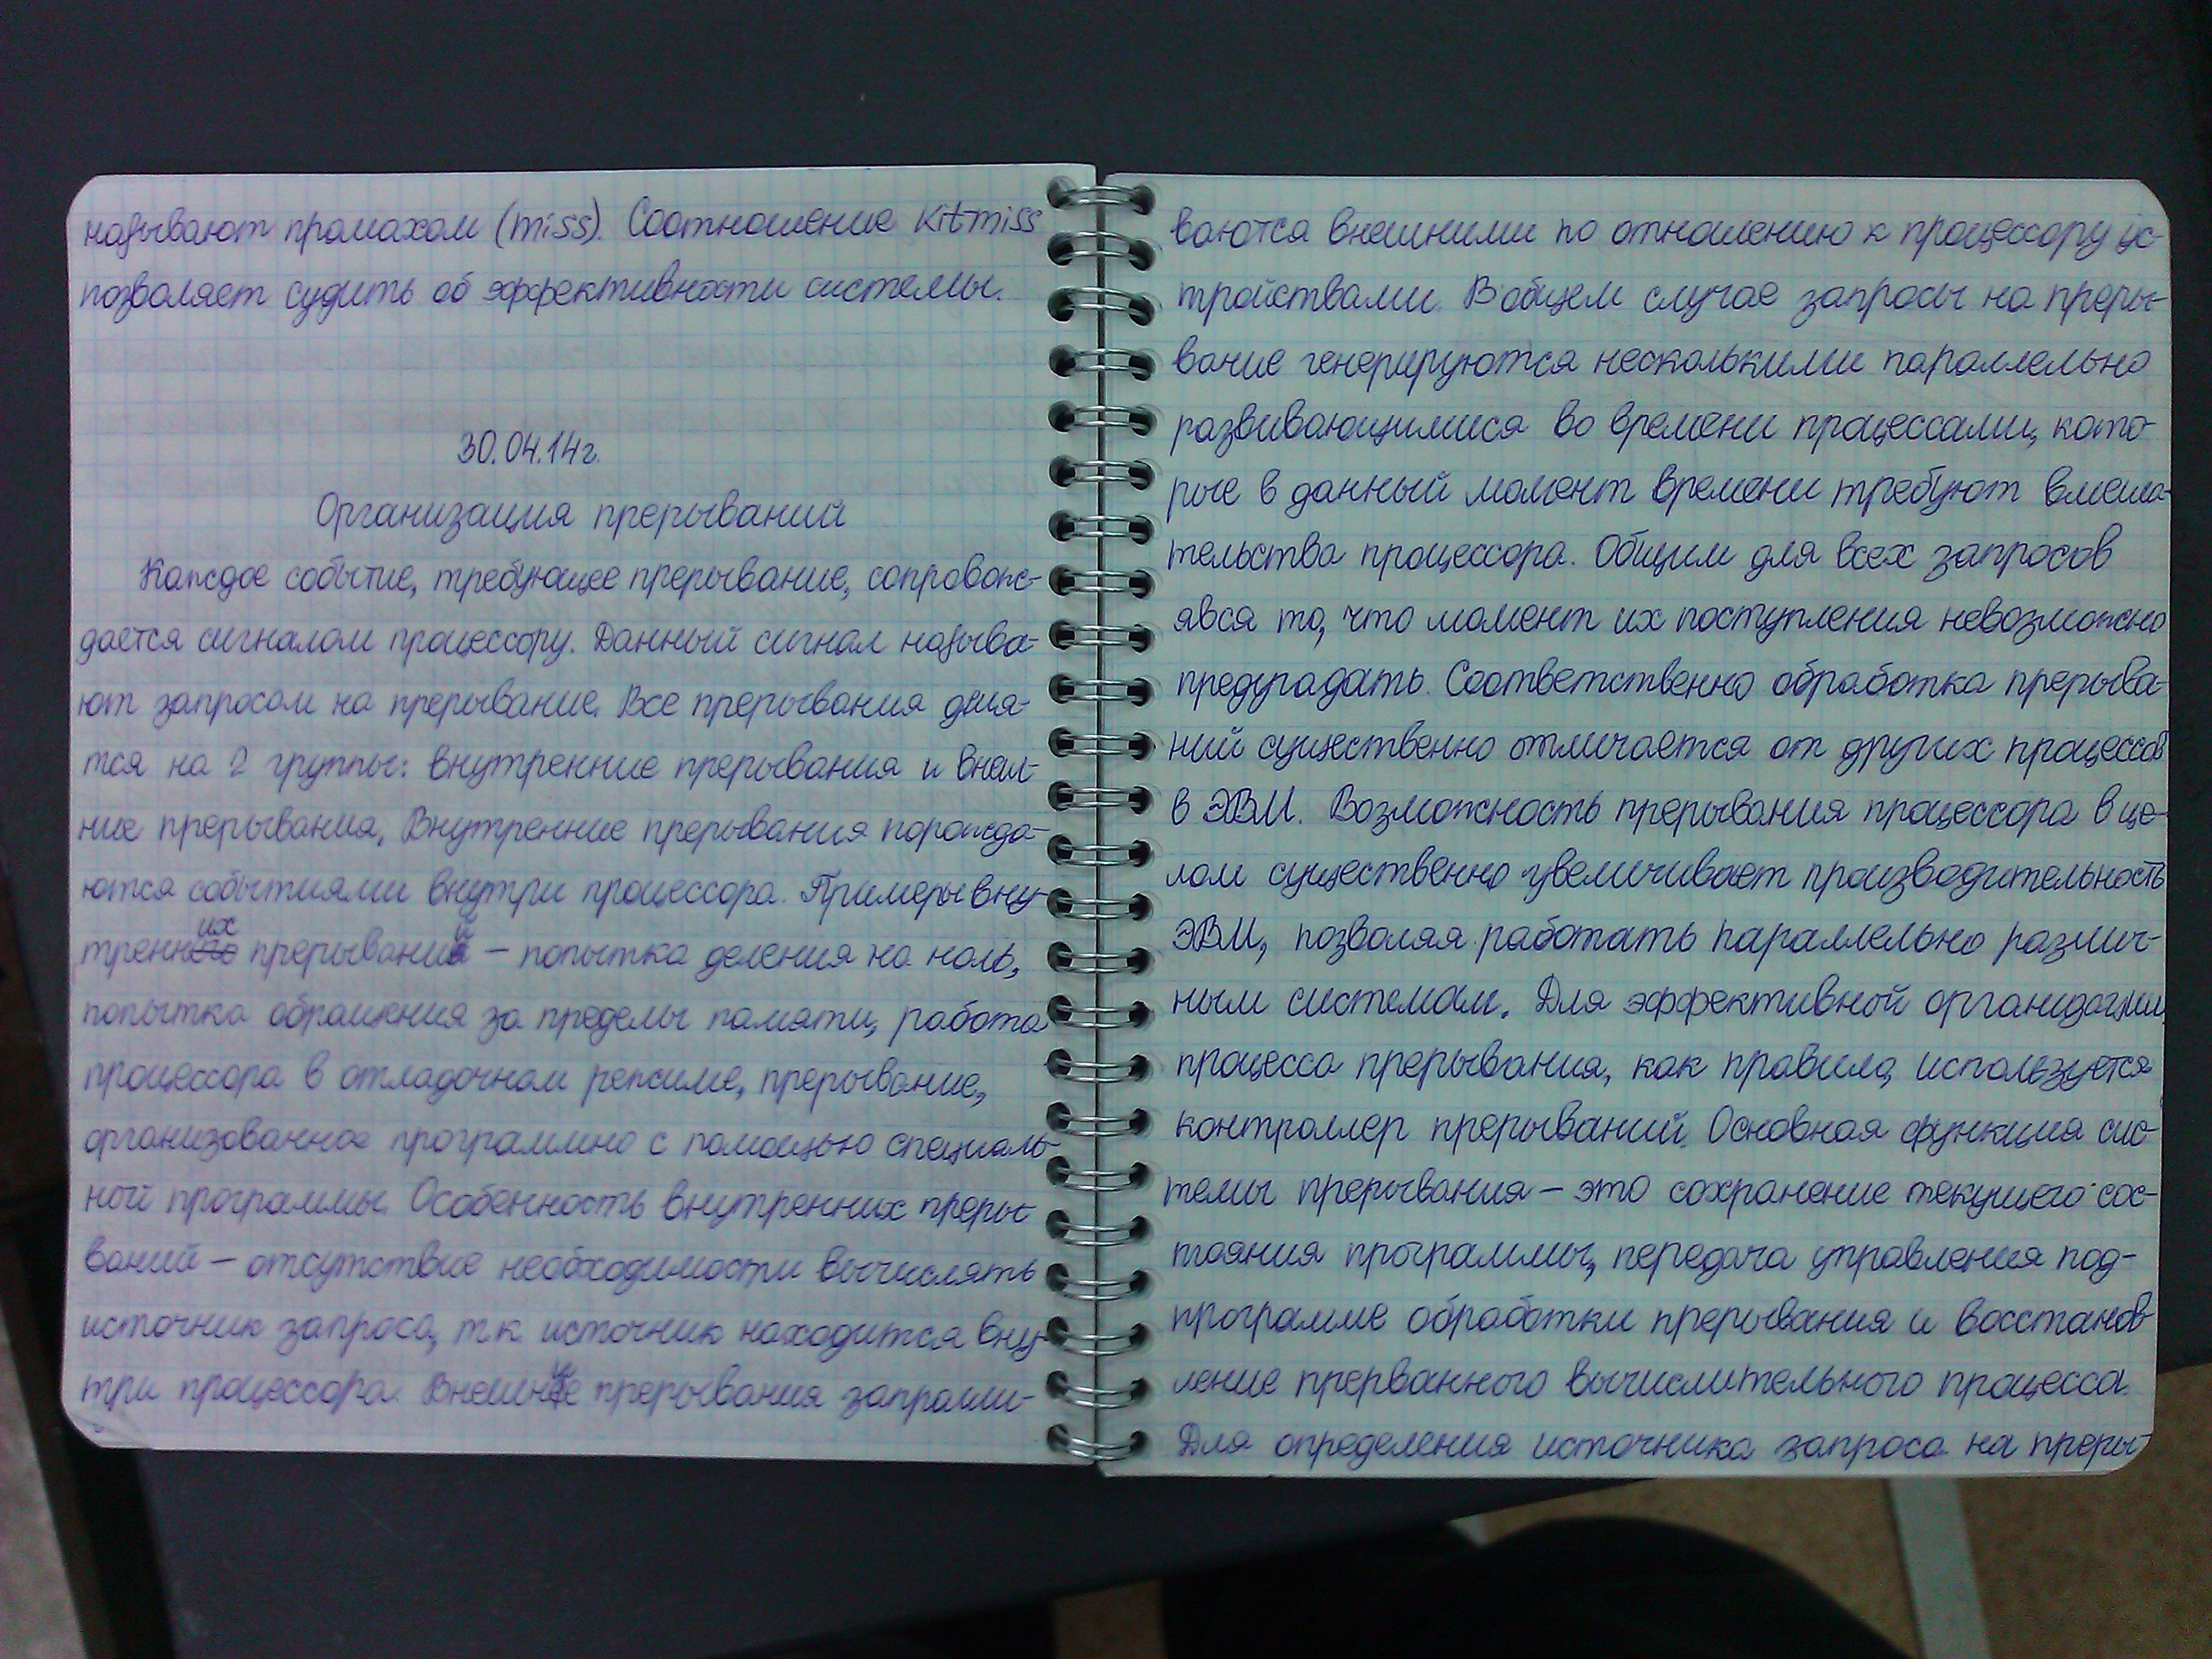 называют промахом (miss). Соотношение Kitmiss
позволяет судить об эффективности системы.
30.04.14г.
Организация прерываний
Каждое событие, требующее прерывание, сопровож-
дается сигналом процессору. Данный сигнал называ-
ют запросом на прерывание. Все прерывания деля-
тся на 2 группы: внутренние прерывания и внеш-
ние прерывания. Внутренние прерывания порожда-
ются событиями внутри процессора. Примеры вну-
тренних прерываний – попытка деления на ноль,
попытка обращения за пределы памяти, работа
процессора в отладочном режиме, прерывание,
организованное программно с помощью специаль-
ной программы. Особенность внутренних преры-
ваний – отсутствие необходимости вычислять
источник запроса, т.к. источник находится вну-
три процессора. Внешние прерывания запраши-
ваются внешними по отношению к процессору ус-
тройствами. В общем случае запросы на преры-
вание генерируются несколькими параллельно
развивающимися во времени процессами, кото-
рые в данный момент времени требуют вмеша-
тельства процессора. Общим для всех запросов
явся то, что момент их поступления невозможно
предугадать. Соответственно обработка прерыва-
ний существенно отличается от других процессов
в ЭВМ. Возможность прерывания процессора в це-
лом существенно увеличивает производительность
ЭВМ, позволяя работать параллельно различ-
ным системам. Для эффективной организации
процесса прерывания, как правило, используется
контроллер прерываний. Основная функция сис-
темы прерывания – это сохранение текущего сос-
тояния программы, передача управления под-
программе обработки прерывания и восстанов-
ление прерванного вычислительного процесса.
Для определения источника запроса на преры-